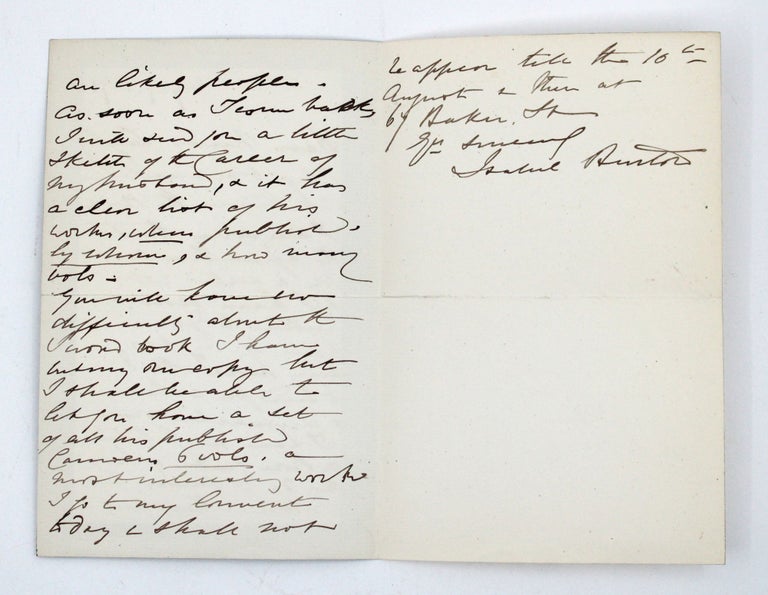 are likely people.
As soon as I come back
I will send you a little
Sketch of the Career of
my husband, & it has
a clear list of his
works, when published
by whom, & how many
vols.
You will have no
difficulty about the
Sword book I have
but my own copy but
I shall be able to
let you have a set
of all his published
Camoens 6 vols. a
most interesting work
I go to my Convent
today & shall not
reappear till the 10th
August & then at
67 Baker St
Yrs sincerely
Isabel Burton